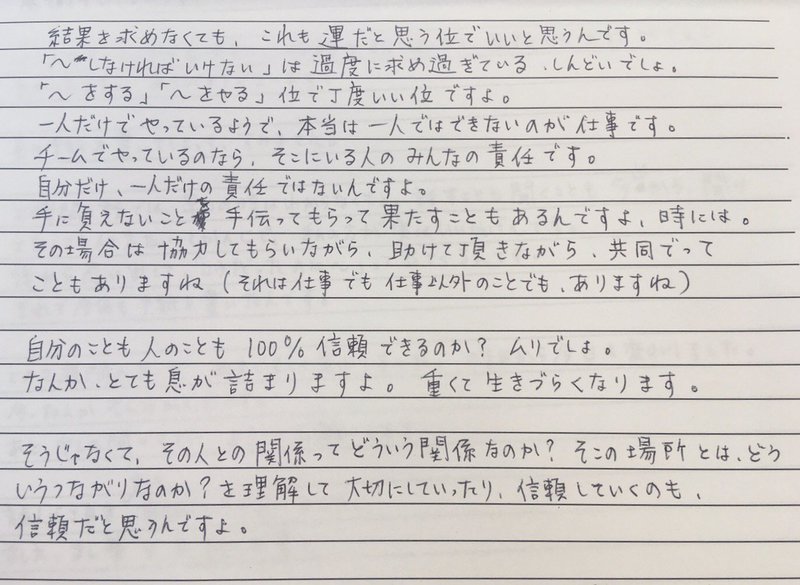 結果を求めなくても、これも運だと思う位でいいと思うんです。
「〜しなければいけない」は過度に求め過ぎている、しんどいでしょ。
「〜をする」「〜をやる」位で丁度いい位ですよ。
一人だけでやっているようで、本当は一人ではできないのが仕事です。
チームでやっているのなら、そこにいる人のみんなの責任です。
自分だけ、一人だけの責任ではないんですよ。
手に負えないこと 手伝ってもらって果たすこともあるんですよ、時には。
その場合は協力してもらいながら、助けて頂きながら、共同でって
こともありますね(それは仕事でも仕事以外のことでも、ありますね)
自分のことも人のことも100%信頼できるのか?ムリでしょ。
なんか、とても息が詰まりますよ。重くて生きづらくなります。
そうじゃなくて、その人との関係ってどういう関係なのか?そこの場所とは、どう
いうつながりなのか?を理解して大切にしていったり、信頼していくのも、
信頼だと思うんですよ。